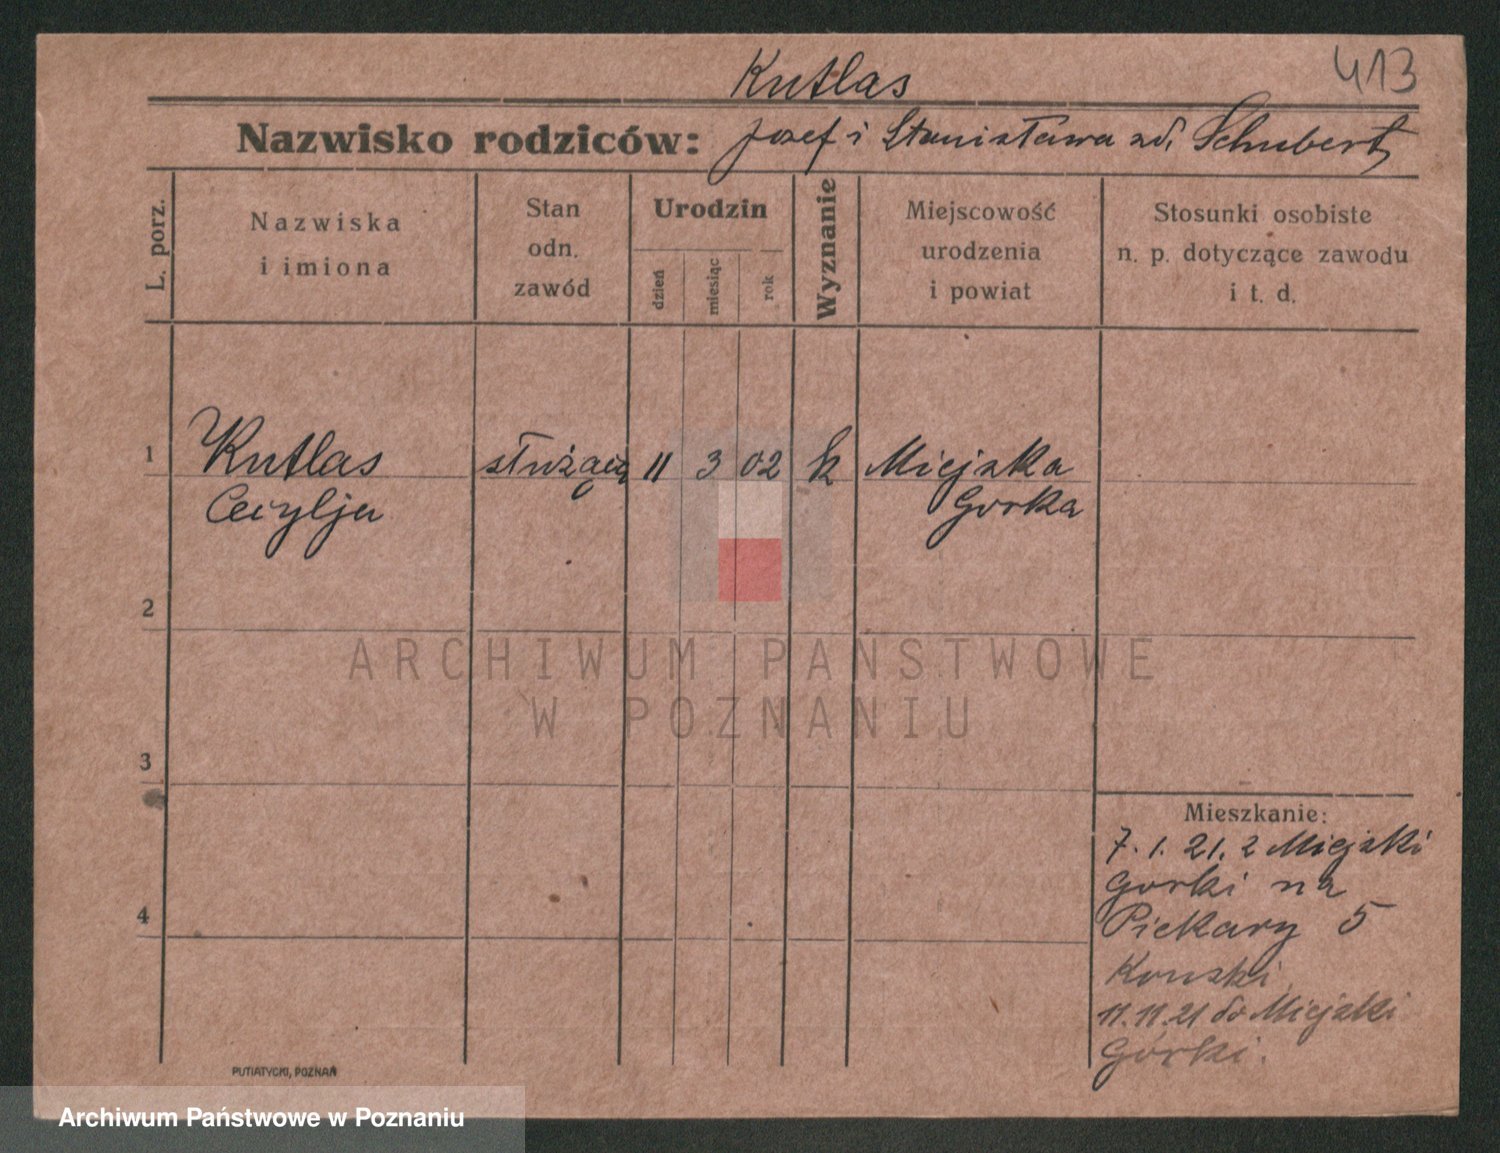 413
Kutlas
Nazwisko rodziców: Jozef i Stanisława zd. Schubert
L. porz.
Nazwiska
i imiona
Stan
odn.
zawód
Urodzin
dzień
miesiąc
rok
Wyznanie
Miejscowość
urodzenia
i powiat
Stosunki osobiste
n. p. dotyczące zawodu
i t. d.
1 Kutlas służąca 11 3 02 k Miejska
Cecylja Gorka
2
3
4
Mieszkanie:
7. 1. 21. z Miejski
Gorki na
Piekary 5
Konski
11.11.21 do Miejski
Górki.
PUTIATYCKI, POZNAŃ
ARCHIWUM PAŃSTWOWE
W POZNANIU
Archiwum Państwowe w Poznaniu